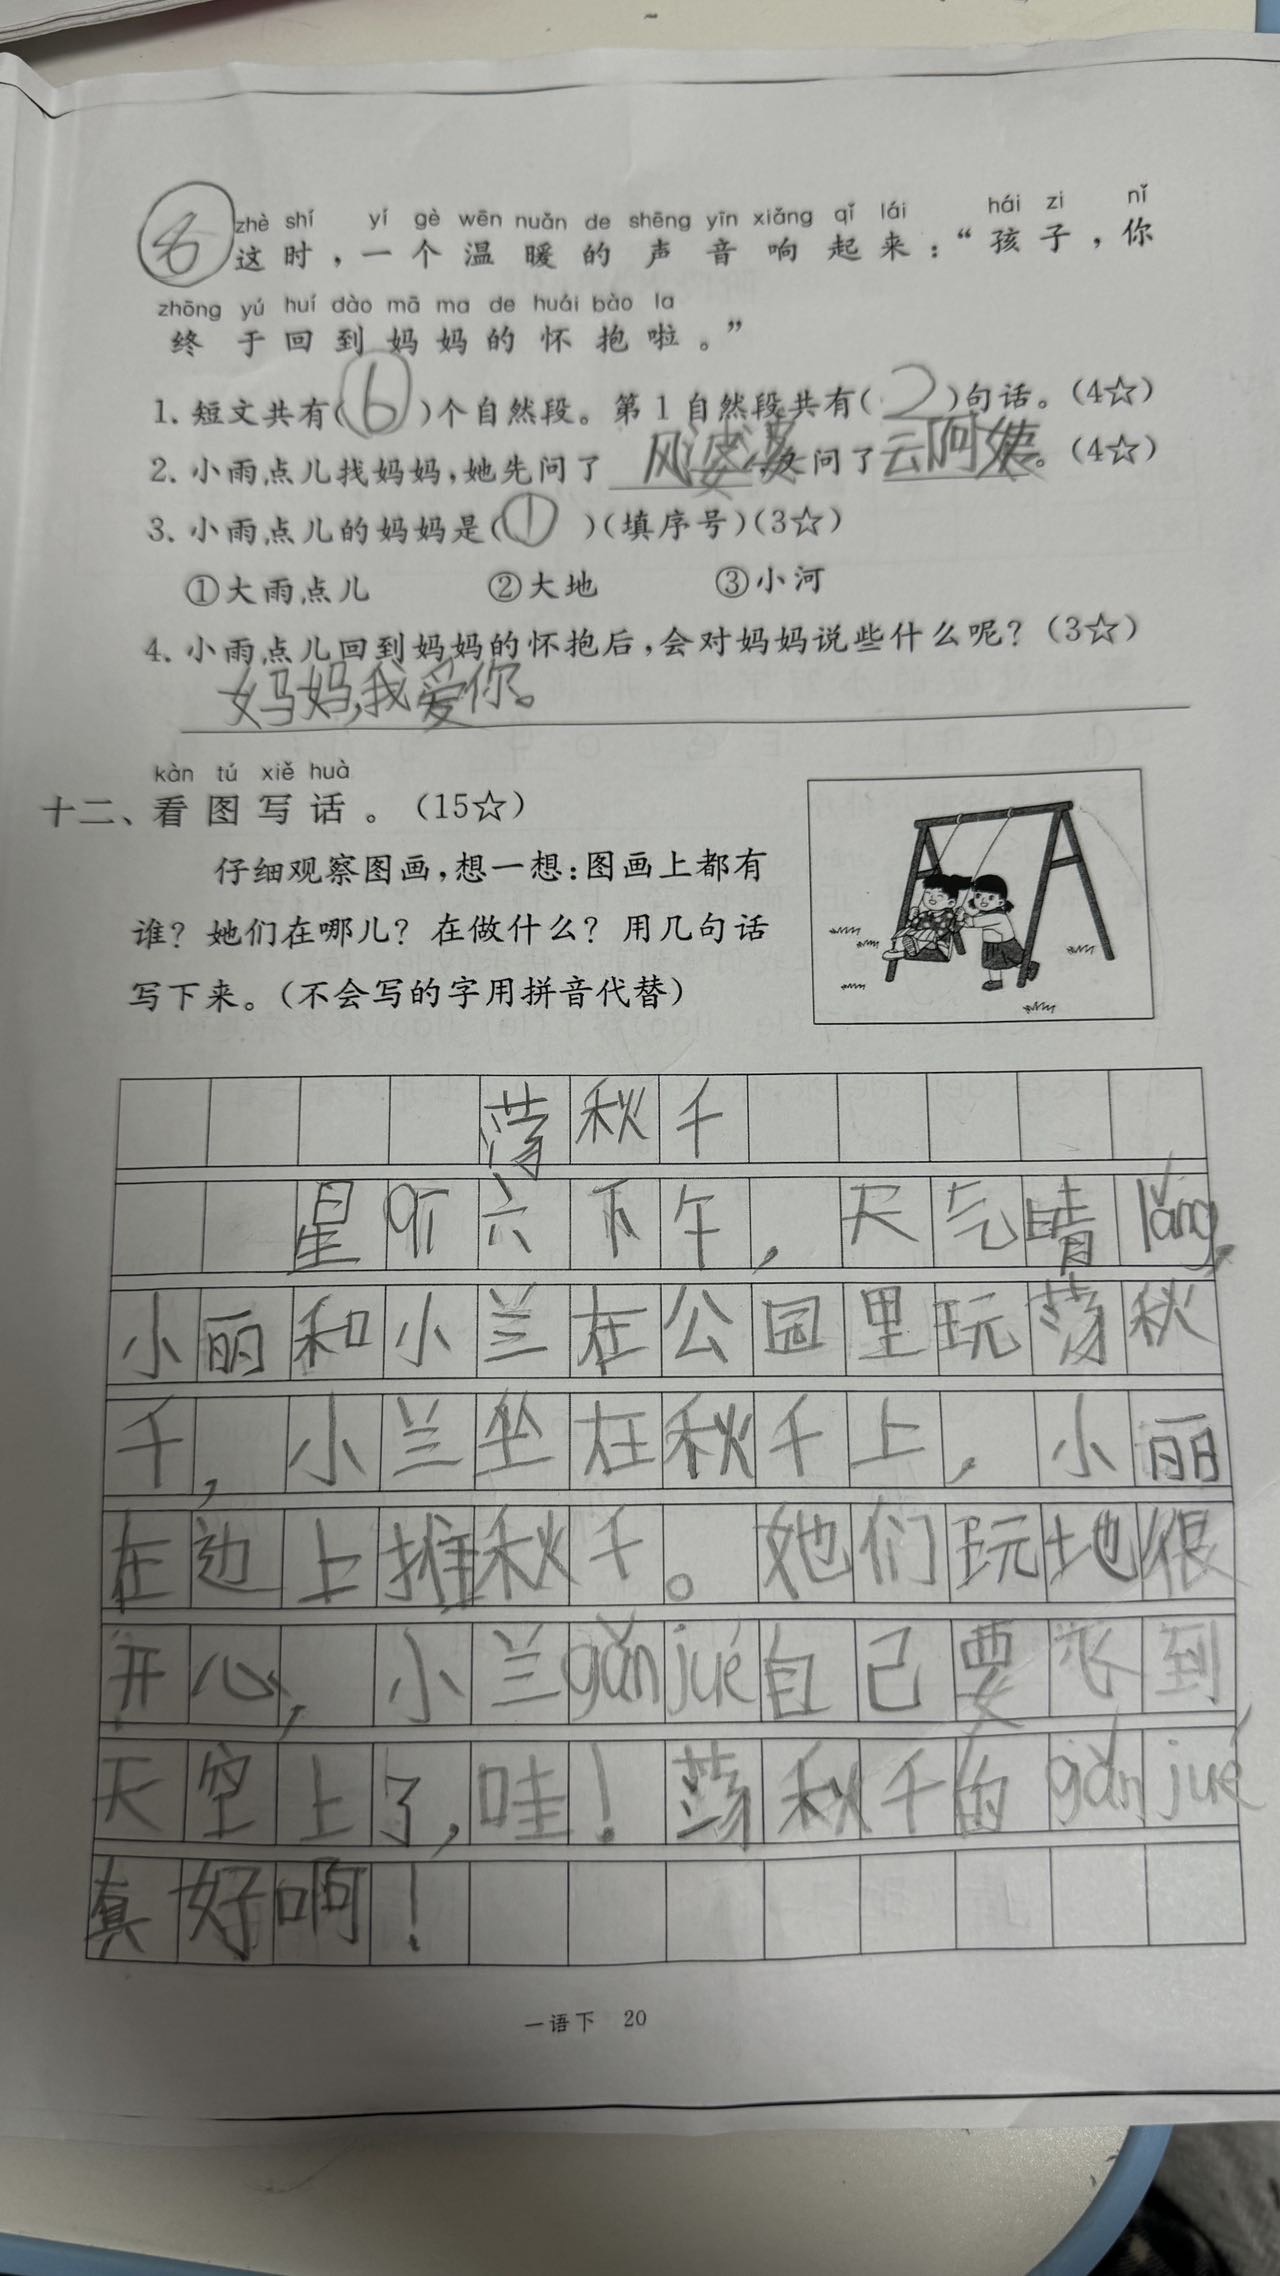 ⑥
zhè shí yí gè wēn nuǎn de shēng yīn xiǎng qǐ lái hái zi nǐ
这时，一个温暖的声音响起来：“孩子，你
zhōng yú huí dào mā ma de huái bào la
终于回到妈妈的怀抱啦。”
1. 短文共有(6)个自然段。第1自然段共有(2)句话。(4☆)
2. 小雨点儿找妈妈，她先问了风婆婆，又问了云阿姨。(4☆)
3. 小雨点儿的妈妈是(①)(填序号)(3☆)
①大雨点儿 ②大地 ③小河
4. 小雨点儿回到妈妈的怀抱后，会对妈妈说些什么呢？(3☆)
妈妈，我爱你。
kàn tú xiě huà
十二、看图写话。(15☆)
仔细观察图画，想一想：图画上都有
谁？她们在哪儿？在做什么？用几句话
写下来。(不会写的字用拼音代替)
荡秋千
星qī六下午，天气晴lǎng，
小丽和小兰在公园里玩荡秋
千，小兰坐在秋千上，小丽
在边上推秋千。她们玩地很
开心，小兰gǎnjué自己要飞到
天空上了，哇！荡秋千的gǎnjué
真好啊！
一语下 20